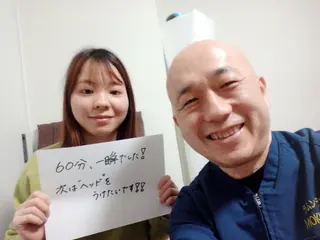 60分、一瞬でした!
次は"ヘッド"を
うけたいです!!